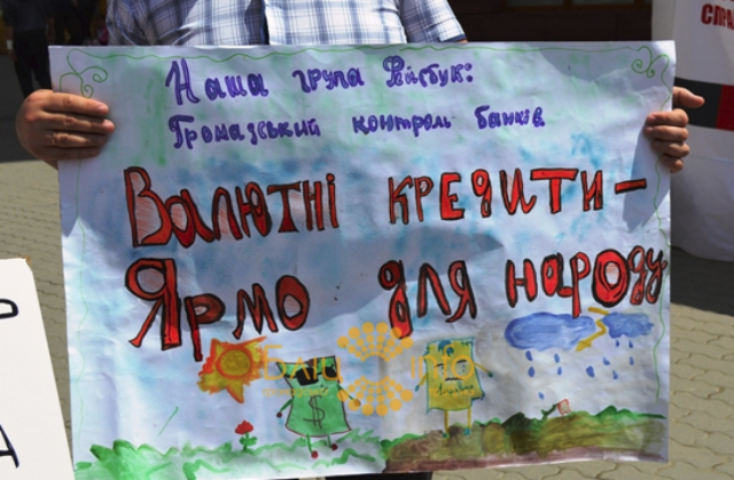 Наша група Фейсбук:
Громадський контроль банків
Валютні кредити –
Ярмо для народу
$